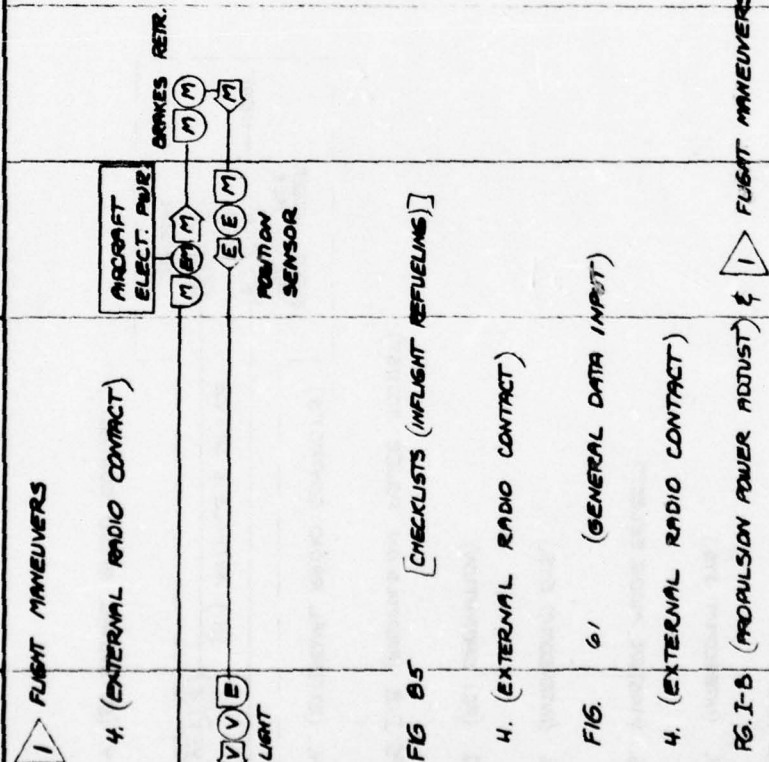 1 FLIGHT MANEUVERS
4. (EXTERNAL RADIO CONTACT)
AIRCRAFT
ELECT. PWR.
BRAKES RETR.
M EM M
M M
V V E
E E M
M
LIGHT
POSITION
SENSOR
FIG 85 [CHECKLISTS (INFLIGHT REFUELING)]
4. (EXTERNAL RADIO CONTACT)
FIG. 61 (GENERAL DATA INPUT)
4. (EXTERNAL RADIO CONTACT)
PG. I-B (PROPULSION POWER ADJUST) & 1 FLIGHT MANEUVERS